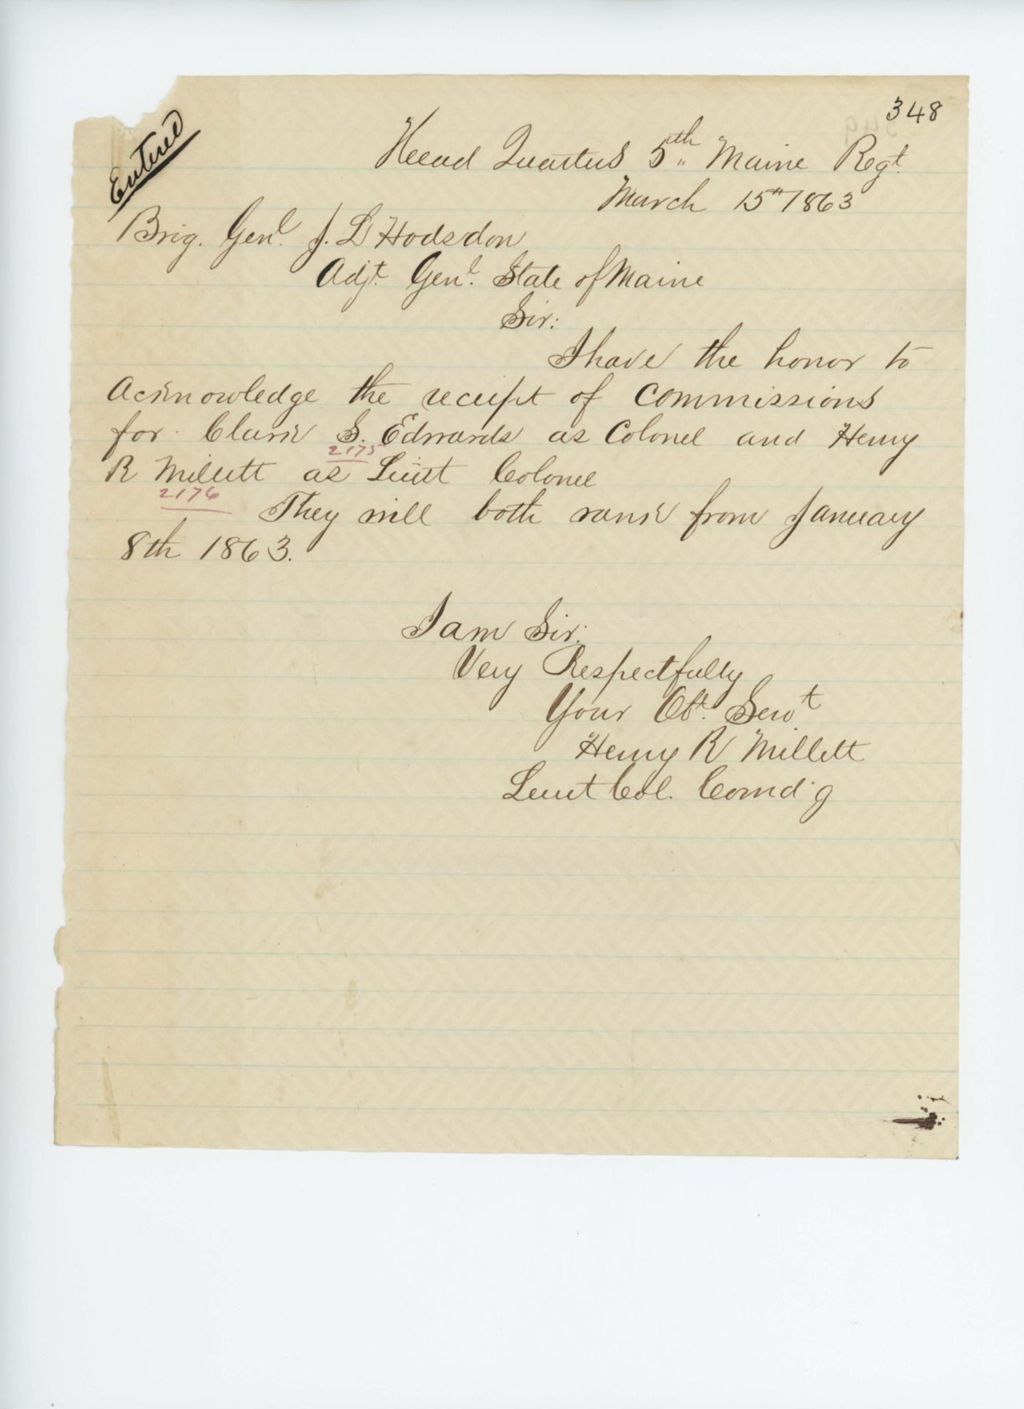 348
Entered
Head Quarters 5th Maine Regt.
March 15th 1863
Brig. Genl. J. L Hodsdon
Adjt. Genl. State of Maine
Sir:
I have the honor to
Acknowledge the receipt of Commissions
for Clark S. Edwards as Colonel and Henry
2175
R Millett as Lieut Colonel
2176
They will both rank from January
8th 1863.
I am Sir:
Very Respectfully
Your Obt. Servt
Henry R Millett
Lieut Col. Comd'g